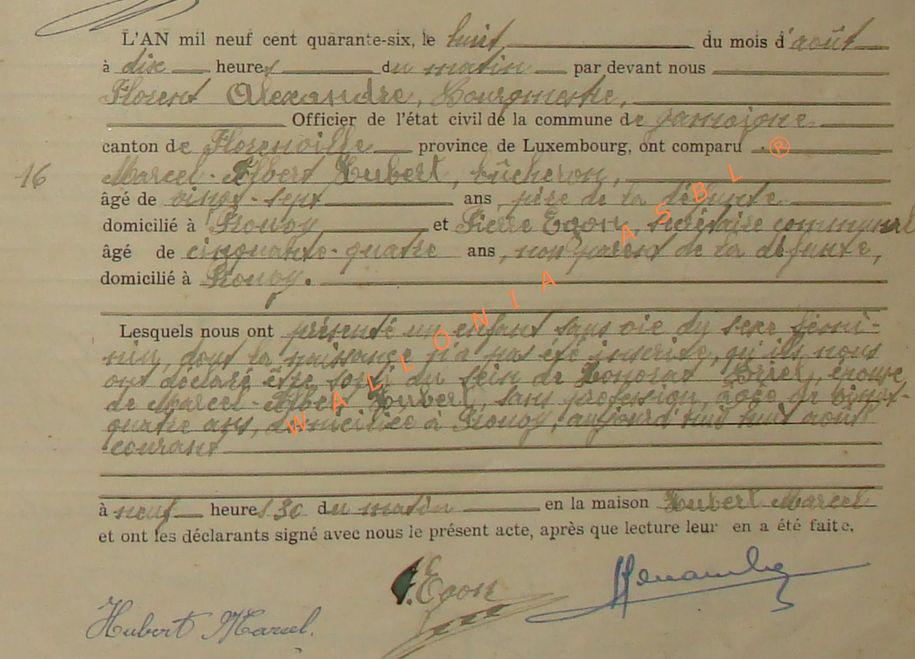 L'AN mil neuf cent quarante-six, le huit du mois d'août
à dix heures du matin par devant nous
Florent Alexandre, Bourgmestre,
Officier de l'état civil de la commune de Jamoigne
canton de Florenville province de Luxembourg, ont comparu
16 Marcel-Albert Hubert, bûcheron,
âgé de vingt-sept ans, père de la défunte
domicilié à Prouvy et Pierre Egon, secrétaire communal
âgé de cinquante-quatre ans, non parent de la défunte,
domicilié à Prouvy.
Lesquels nous ont présenté un enfant sans vie du sexe fémi-
nin, dont la naissance n'a pas été inscrite, qu'ils nous
ont déclaré être sorti du sein de épouse
de Marcel-Albert Hubert, sans profession, âgée de vingt-
quatre ans, domiciliée à Prouvy, aujourd'hui huit août
courant
à neuf heures 30 du matin en la maison Hubert Marcel
et ont les déclarants signé avec nous le présent acte, après que lecture leur en a été faite.
Egon
Hubert Marcel.
WALLONIA ASBL ®